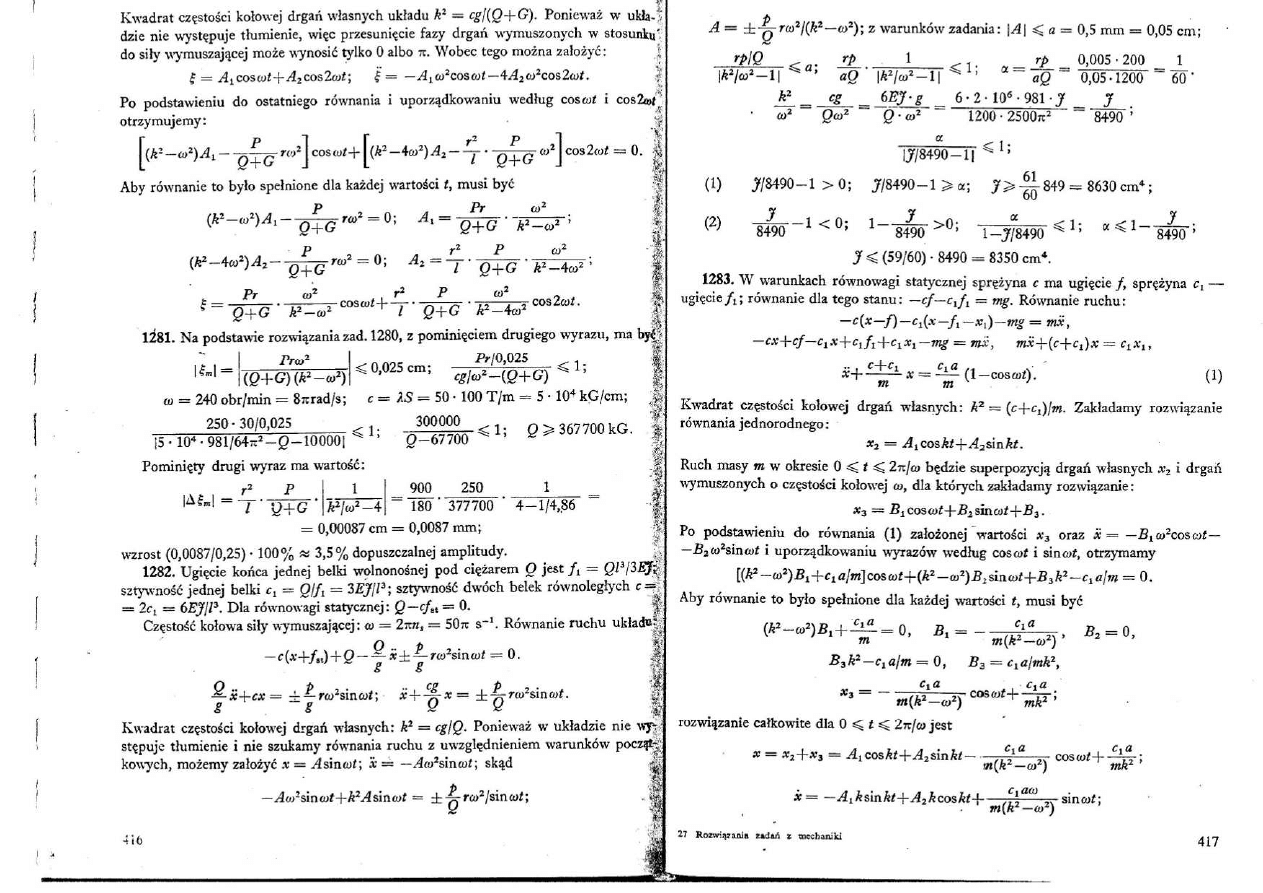 Kwadrat częstości kołowej drgań własnych układu k² = cg/(Q+G). Ponieważ w ukła-
dzie nie występuje tłumienie, więc przesunięcie fazy drgań wymuszonych w stosunku
do siły wymuszającej może wynosić tylko 0 albo π. Wobec tego można założyć:
ξ = A₁cosωt+A₂cos2ωt; ξ̈ = −A₁ω²cosωt−4A₂ω²cos2ωt.
Po podstawieniu do ostatniego równania i uporządkowaniu według cosωt i cos2ωt
otrzymujemy:
[(k²−ω²)A₁− P/(Q+G) rω²]cosωt+[(k²−4ω²)A₂− r²/l · P/(Q+G) ω²]cos2ωt = 0.
Aby równanie to było spełnione dla każdej wartości t, musi być
(k²−ω²)A₁− P/(Q+G) rω² = 0; A₁ = Pr/(Q+G) · ω²/(k²−ω²);
(k²−4ω²)A₂− P/(Q+G) rω² = 0; A₂ = r²/l · P/(Q+G) · ω²/(k²−4ω²);
ξ = Pr/(Q+G) · ω²/(k²−ω²) cosωt+ r²/l · P/(Q+G) · ω²/(k²−4ω²) cos2ωt.
1281. Na podstawie rozwiązania zad. 1280, z pominięciem drugiego wyrazu, ma być
|ξₘ| = |Prω²/((Q+G)(k²−ω²))| ⩽ 0,025 cm; Pr/0,025 / (cg/ω²−(Q+G)) ⩽ 1;
ω = 240 obr/min = 8πrad/s; c = λS = 50 · 100 T/m = 5 · 10⁴ kG/cm;
250 · 30/0,025 / |5 · 10⁴ · 981/64π²−Q−10000| ⩽ 1; 300000/(Q−67700) ⩽ 1; Q ⩾ 367700 kG.
Pominięty drugi wyraz ma wartość:
|Δξₘ| = r²/l · P/(Q+G) · |1/(k²/ω²−4)| = 900/180 · 250/377700 · 1/(4−1/4,86) =
= 0,00087 cm = 0,0087 mm;
wzrost (0,0087/0,25) · 100% ≈ 3,5% dopuszczalnej amplitudy.
1282. Ugięcie końca jednej belki wolnonośnej pod ciężarem Q jest f₁ = Ql³/3EJ;
sztywność jednej belki c₁ = Q/f₁ = 3EJ/l³; sztywność dwóch belek równoległych c =
= 2c₁ = 6EJ/l³. Dla równowagi statycznej: Q−cfₛₜ = 0.
Częstość kołowa siły wymuszającej: ω = 2πnₛ = 50π s⁻¹. Równanie ruchu układu:
−c(x+fₛₜ)+Q− Q/g ẍ ± p/g rω²sinωt = 0.
Q/g ẍ+cx = ± p/g rω²sinωt; ẍ+ cg/Q x = ± p/Q rω²sinωt.
Kwadrat częstości kołowej drgań własnych: k² = cg/Q. Ponieważ w układzie nie wy-
stępuje tłumienie i nie szukamy równania ruchu z uwzględnieniem warunków począt-
kowych, możemy założyć x = Asinωt; ẍ = −Aω²sinωt; skąd
−Aω²sinωt+k²Asinωt = ± p/Q rω²/sinωt;
416
A = ± p/Q rω²/(k²−ω²); z warunków zadania: |A| ⩽ a = 0,5 mm = 0,05 cm;
rp/Q / |k²/ω²−1| ⩽ a; rp/aQ · 1/|k²/ω²−1| ⩽ 1; α = rp/aQ = 0,005 · 200/0,05 · 1200 = 1/60.
k²/ω² = cg/Qω² = 6EJ · g/Q · ω² = 6 · 2 · 10⁶ · 981 · J/1200 · 2500π² = J/8490;
α/|J/8490−1| ⩽ 1;
(1) J/8490−1 > 0; J/8490−1 ⩾ α; J ⩾ 61/60 849 = 8630 cm⁴;
(2) J/8490 −1 < 0; 1− J/8490 >0; α/(1−J/8490) ⩽ 1; α ⩽ 1− J/8490;
J ⩽ (59/60) · 8490 = 8350 cm⁴.
1283. W warunkach równowagi statycznej sprężyna c ma ugięcie f, sprężyna c₁ —
ugięcie f₁; równanie dla tego stanu: −cf−c₁f₁ = mg. Równanie ruchu:
−c(x−f)−c₁(x−f₁−x₁)−mg = mẍ,
−cx+cf−c₁x+c₁f₁+c₁x₁−mg = mẍ, mẍ+(c+c₁)x = c₁x₁,
ẍ+ (c+c₁)/m x = c₁a/m (1−cosωt). (1)
Kwadrat częstości kołowej drgań własnych: k² = (c+c₁)/m. Zakładamy rozwiązanie
równania jednorodnego:
x₂ = A₁coskt+A₂sinkt.
Ruch masy m w okresie 0 ⩽ t ⩽ 2π/ω będzie superpozycją drgań własnych x₂ i drgań
wymuszonych o częstości kołowej ω, dla których zakładamy rozwiązanie:
x₃ = B₁cosωt+B₂sinωt+B₃.
Po podstawieniu do równania (1) założonej wartości x₃ oraz ẍ = −B₁ω²cosωt−
−B₂ω²sinωt i uporządkowaniu wyrazów według cosωt i sinωt, otrzymamy
[(k²−ω²)B₁+c₁a/m]cosωt+(k²−ω²)B₂sinωt+B₃k²−c₁a/m = 0.
Aby równanie to było spełnione dla każdej wartości t, musi być
(k²−ω²)B₁+ c₁a/m = 0, B₁ = − c₁a/m(k²−ω²), B₂ = 0,
B₃k²−c₁a/m = 0, B₃ = c₁a/mk²,
x₃ = − c₁a/m(k²−ω²) cosωt+ c₁a/mk²;
rozwiązanie całkowite dla 0 ⩽ t ⩽ 2π/ω jest
x = x₂+x₃ = A₁coskt+A₂sinkt− c₁a/m(k²−ω²) cosωt+ c₁a/mk²;
ẋ = −A₁ksinkt+A₂kcoskt+ c₁aω/m(k²−ω²) sinωt;
27 Rozwiązania zadań z mechaniki
417